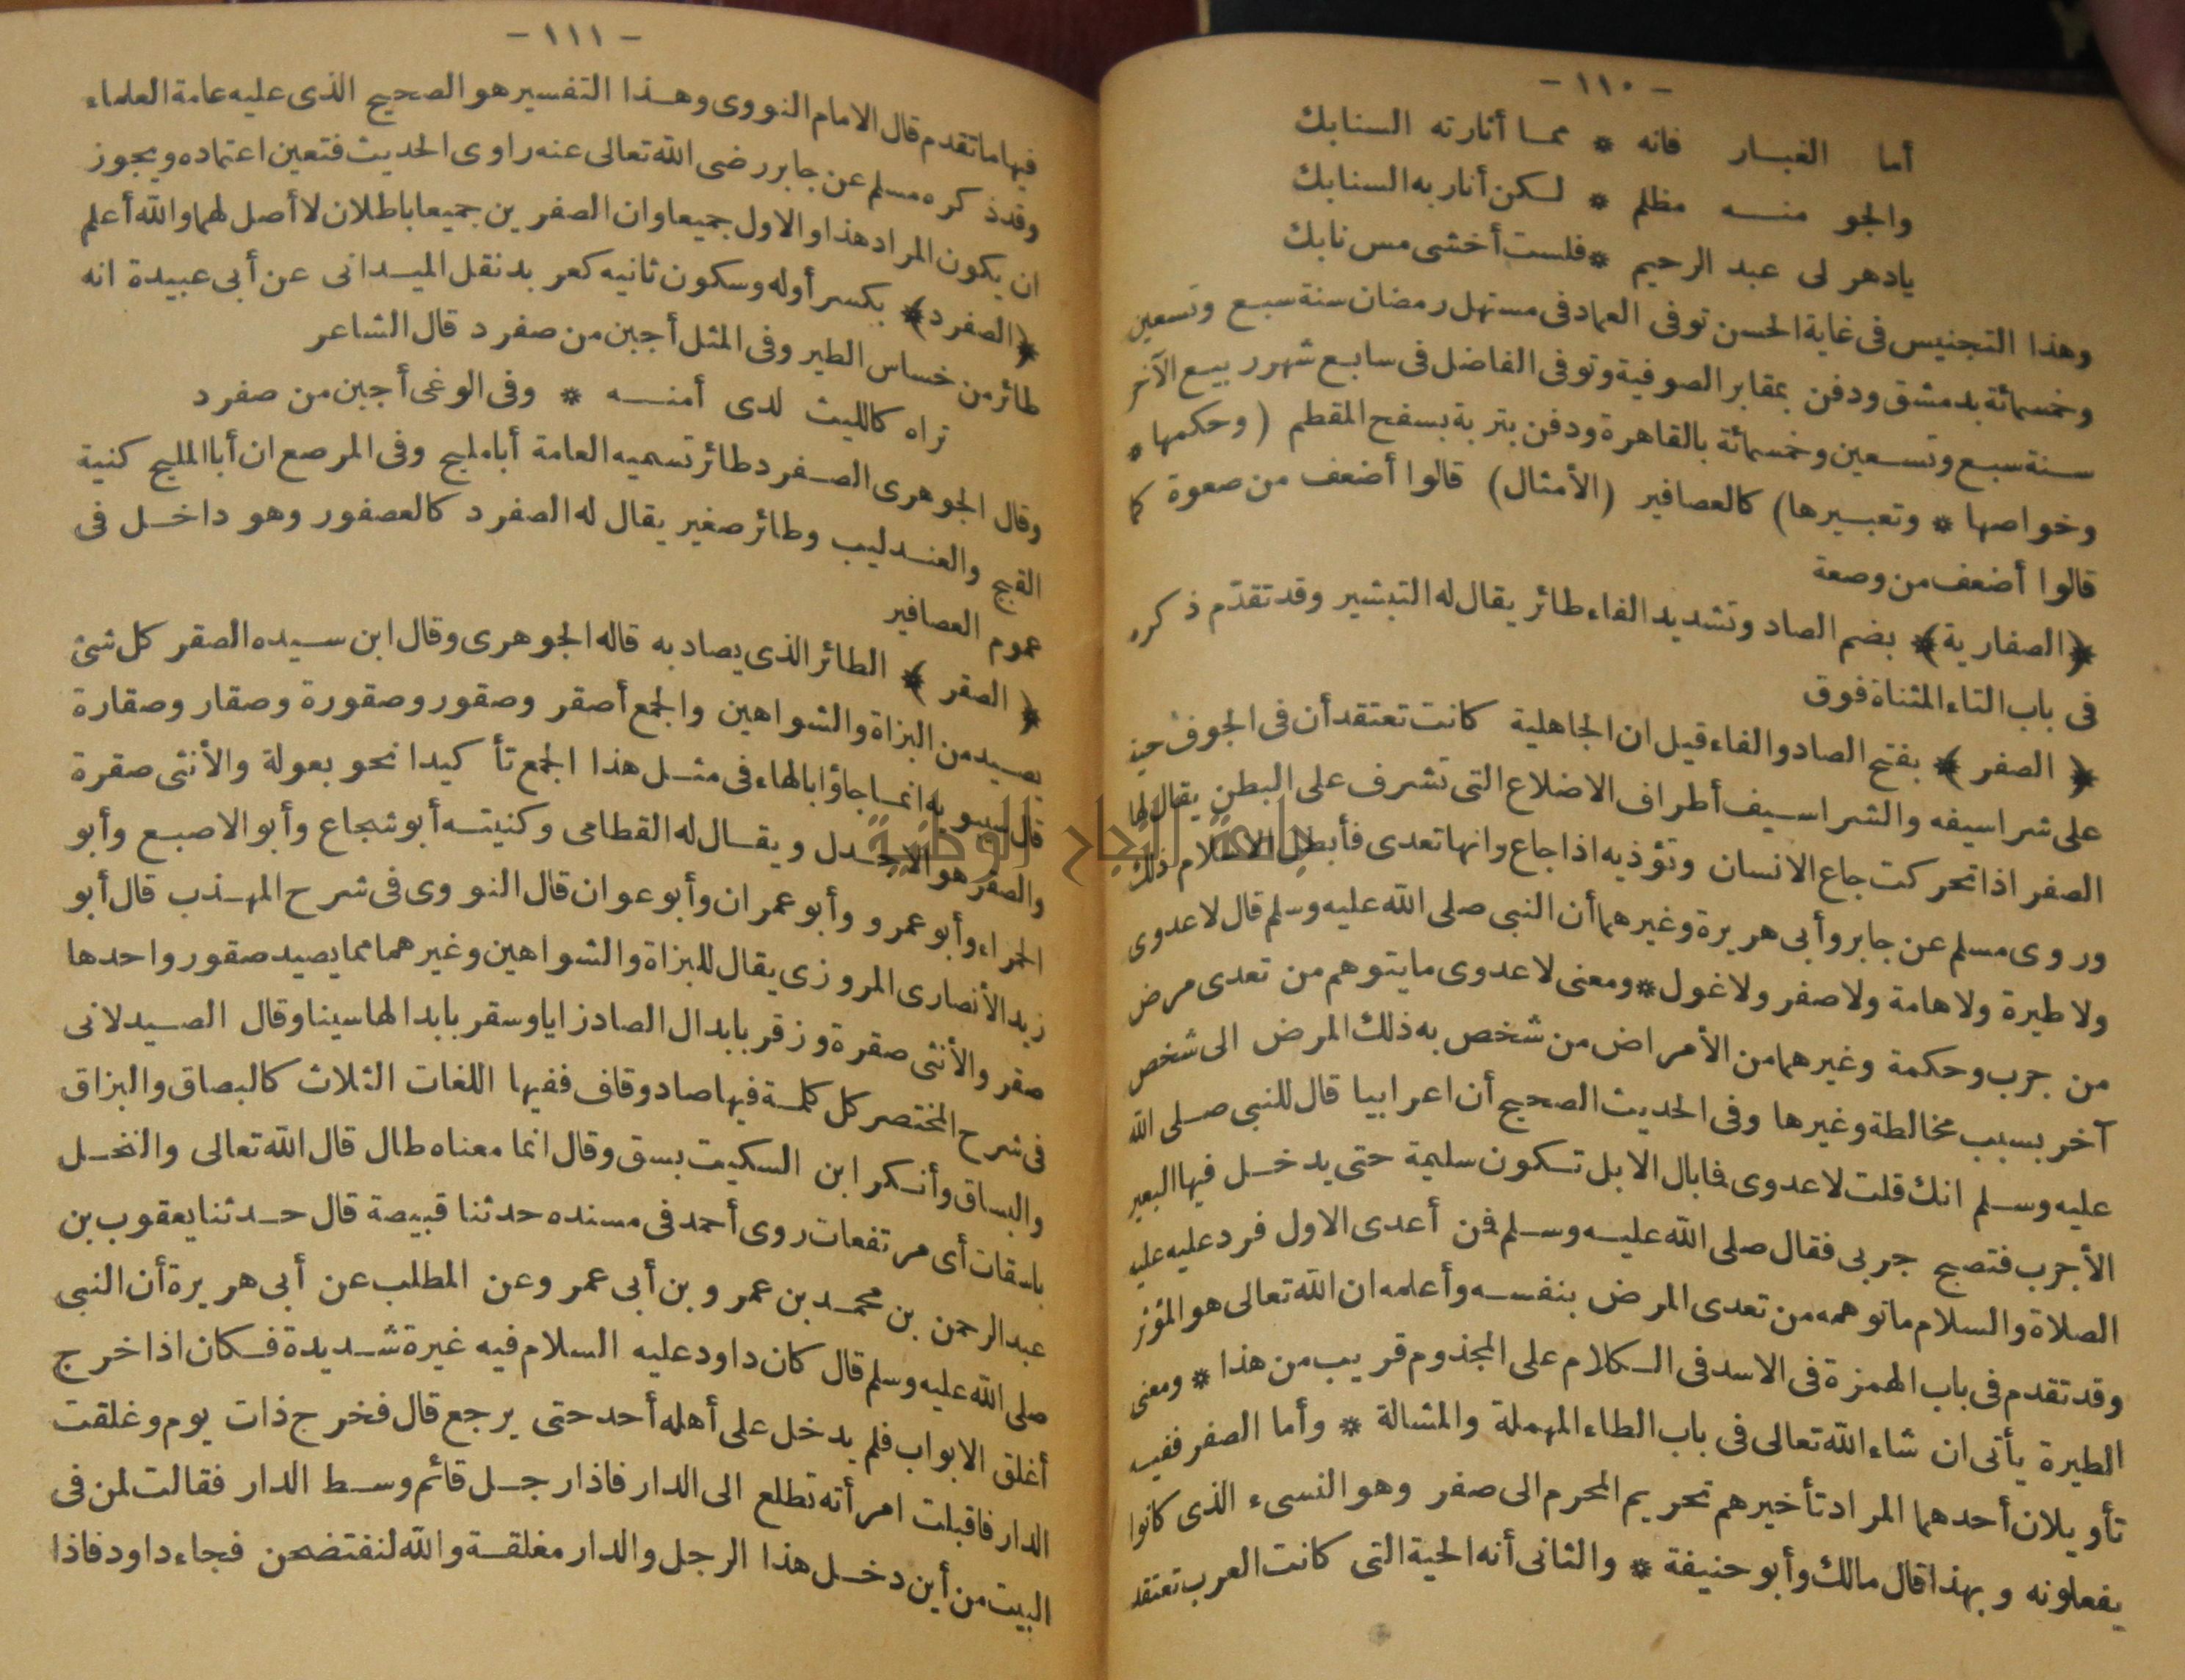 - ١١٠ -
أما الغبار فانه * مما أثارته السنابك
والجو منه مظلم * لكن أنار به السنابك
يادهر لى عبد الرحيم * فلست أخشى مس نابك
وهذا التجنيس فى غاية الحسن توفى العماد فى مستهل رمضان سنة سبع وتسعين
وخمسمائة بدمشق ودفن بمقابر الصوفية وتوفى الفاضل فى سابع شهر ربيع الآخر
سنة سبع وتسعين وخمسمائة بالقاهرة ودفن بتربة بسفح المقطم (وحكمها *
وخواصها * وتعبيرها) كالعصافير (الأمثال) قالوا أضعف من صعوة كما
قالوا أضعف من وصعة
﴿الصفارية﴾ بضم الصاد وتشديد الفاء طائر يقال له التبشير وقد تقدّم ذكره
فى باب التاء المثناة فوق
﴿الصفر﴾ بفتح الصاد والفاء قيل ان الجاهلية كانت تعتقد أن فى الجوف حية
على شراسيفه والشراسيف أطراف الاضلاع التى تشرف على البطن يقال لها
الصفر اذا تحركت جاع الانسان وتؤذيه اذا جاع وانها تعدى فأبطل الاسلام ذلك
وروى مسلم عن جابر وأبى هريرة وغيرهما أن النبى صلى الله عليه وسلم قال لا عدوى
ولا طيرة ولا هامة ولا صفر ولا غول * ومعنى لا عدوى ما يتوهم من تعدى مرض
من جرب وحكمة وغيرهما من الأمراض من شخص به ذلك المرض الى شخص
آخر بسبب مخالطة وغيرها وفى الحديث الصحيح أن اعرابيا قال للنبى صلى الله
عليه وسلم انك قلت لا عدوى فما بال الابل تكون سليمة حتى يدخل فيها البعير
الأجرب فتصبح جربى فقال صلى الله عليه وسلم فمن أعدى الاول فرد عليه عليه
الصلاة والسلام ما توهمه من تعدى المرض بنفسه وأعلمه ان الله تعالى هو المؤثر
وقد تقدم فى باب الهمزة فى الاسد فى الكلام على المجذوم قريب من هذا * ومعنى
الطيرة يأتى ان شاء الله تعالى فى باب الطاء المهملة والمشالة * وأما الصفر ففيه
تأويلان أحدهما المراد تأخيرهم تحريم المحرم الى صفر وهو النسىء الذى كانوا
يفعلونه وبهذا قال مالك وأبو حنيفة * والثانى أنه الحية التى كانت العرب تعتقد
- ١١١ -
فيها ما تقدم قال الامام النووى وهذا التفسير هو الصحيح الذى عليه عامة العلماء
وقد ذكره مسلم عن جابر رضى الله تعالى عنه راوى الحديث فتعين اعتماده ويجوز
ان يكون المراد هذا والاول جميعا وان الصفرين جميعا باطلان لا أصل لهما والله أعلم
﴿الصفرد﴾ بكسر أوله وسكون ثانيه كعربد نقل الميدانى عن أبى عبيدة انه
طائر من خساس الطير وفى المثل أجبن من صفرد قال الشاعر
تراه كالليث لدى أمنه * وفى الوغى أجبن من صفرد
وقال الجوهرى الصفرد طائر تسميه العامة أبا مليح وفى المرصع ان أبا المليح كنية
القبج والعندليب وطائر صغير يقال له الصفرد كالعصفور وهو داخل فى
عموم العصافير
﴿الصقر﴾ الطائر الذى يصاد به قاله الجوهرى وقال ابن سيده الصقر كل شئ
يصيد من البزاة والشواهين والجمع أصقر وصقور وصقورة وصقار وصقارة
قال سيبويه انما جاؤا بالهاء فى مثل هذا الجمع تأكيدا نحو بعولة والأنثى صقرة
والصقر هو الاجدل ويقال له القطامى وكنيته أبو شجاع وأبو الاصبع وأبو
الحمراء وأبو عمرو وأبو عمران وأبو عوان قال النووى فى شرح المهذب قال أبو
زيد الأنصارى المروزى يقال للبزاة والشواهين وغيرهما مما يصيد صقور واحدها
صقر والأنثى صقرة وزقر بابدال الصاد زايا وسقر بابدالها سينا وقال الصيدلانى
فى شرح المختصر كل كلمة فيها صاد وقاف ففيها اللغات الثلاث كالبصاق والبزاق
والبساق وأنكر ابن السكيت بسق وقال انما معناه طال قال الله تعالى والنخل
باسقات أى مرتفعات روى أحمد فى مسنده حدثنا قبيصة قال حدثنا يعقوب بن
عبد الرحمن بن محمد بن عمرو بن أبى عمر وعن المطلب عن أبى هريرة أن النبى
صلى الله عليه وسلم قال كان داود عليه السلام فيه غيرة شديدة فكان اذا خرج
أغلق الابواب فلم يدخل على أهله أحد حتى يرجع قال فخرج ذات يوم وغلقت
الدار فاقبلت امرأته تطلع الى الدار فاذا رجل قائم وسط الدار فقالت لمن فى
البيت من أين دخل هذا الرجل والدار مغلقة والله لنفتضحن فجاء داود فاذا
جامعة النجاح الوطنية